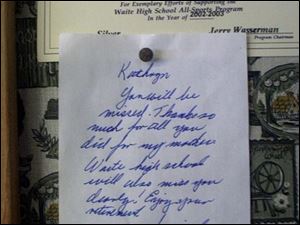 For Exemplary Efforts of Supporting the
Waite High School All-Sports Program
In the Year of 2002-2003
Silver
Jerry Wasserman
Program Chairman
Kathryn
You will be
missed. Thanks so
much for all you
did for my mother
Waite high school
will also miss you
dearly! Enjoy your
retirement